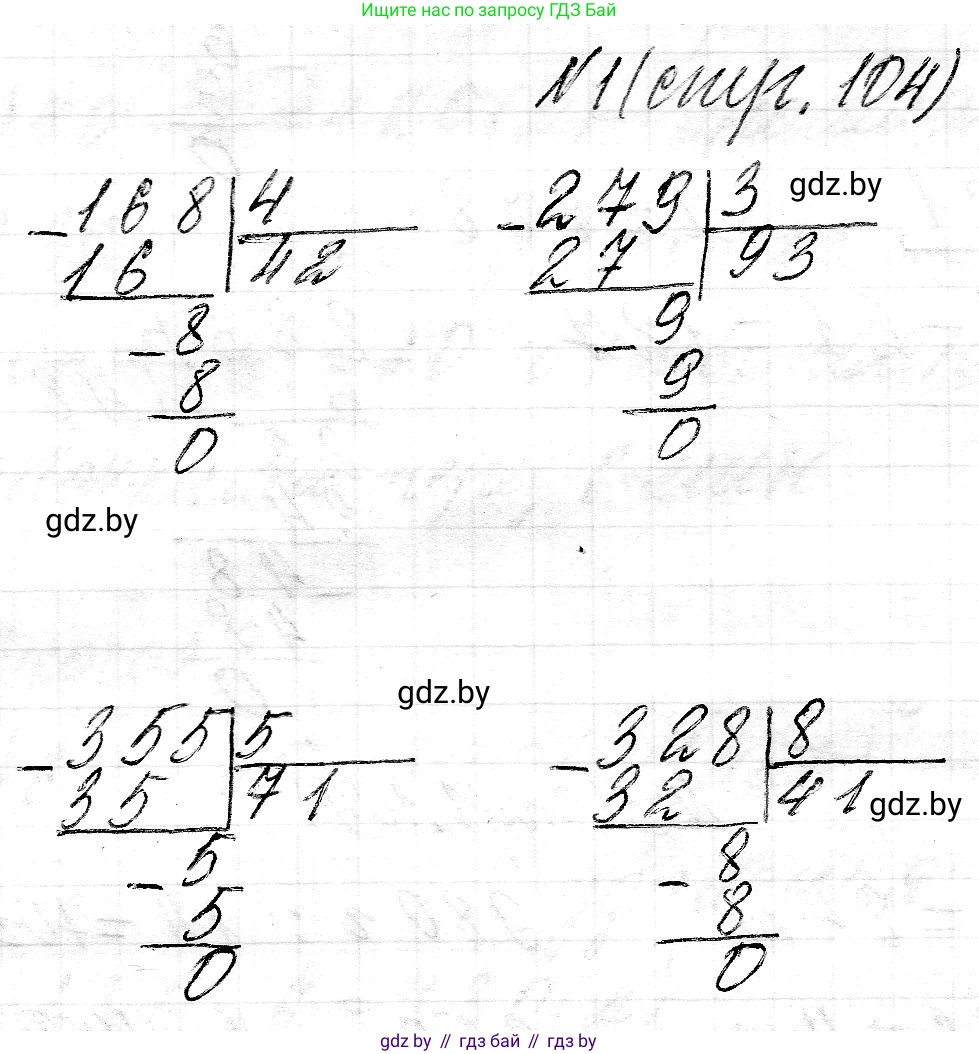 Ищите нас по запросу ГДЗ Бай
№1 (стр. 104)
- 168 | 4
16 | 42
- 8
8
0
- 279 | 3 gdz.by
27 | 93
- 9
9
0
gdz.by
gdz.by
- 355 | 5
35 | 71
- 5
5
0
- 328 | 8
32 | 41 gdz.by
- 8
8
0
gdz.by // гдз бай // гдз by